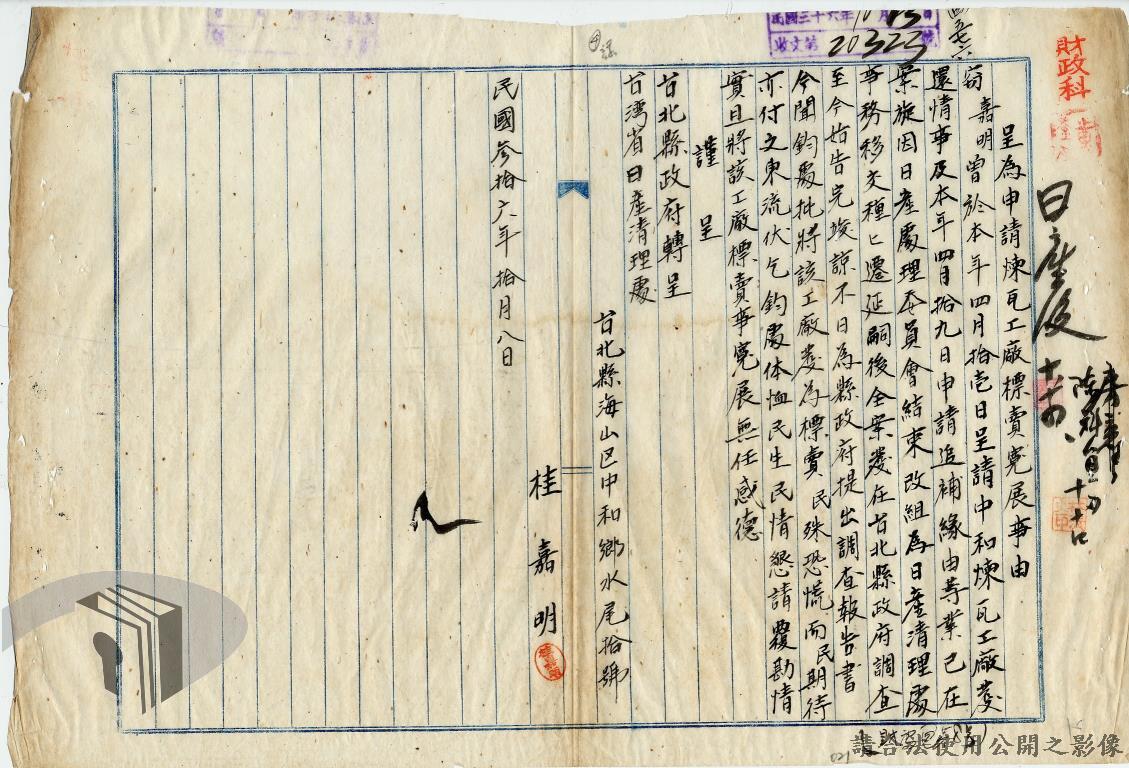 財政科
日產後
呈為申請煉瓦工廠標賣寬展事由
竊嘉明曾於本年四月拾壱日呈請中和煉瓦工廠發
還情事及本年四月拾九日申請追補緣由等業已在
案旋因日產處理委員會結束改組為日產清理處
事務移交種匕遷延嗣後全案發在台北縣政府調查
至今始告完竣諒不日為縣政府提出調查報告書
今聞鈞處批將該工廠發為標賣民殊恐慌而民期待
亦付之東流伏乞鈞處体恤民生民情懇請覆勘情
實且將該工廠標賣事寬展無任感德
謹呈
台北縣政府轉呈
台湾省日產清理處
台北縣海山区中和鄉水尾拾號
桂嘉明
民國參拾六年拾月八日
民國三十六年10月13日
收文第20323號
請合法使用公開之影像